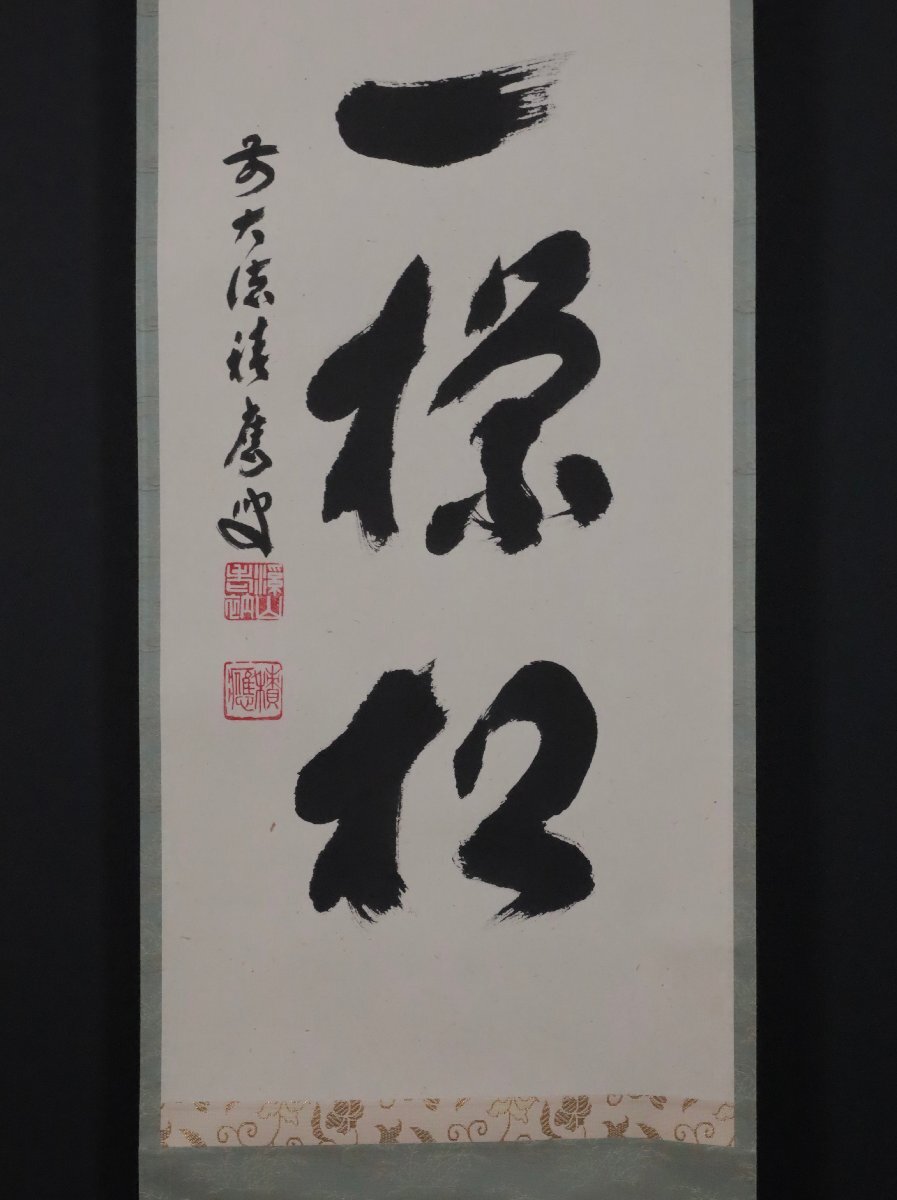 一様松
前大徳積應叟
積應